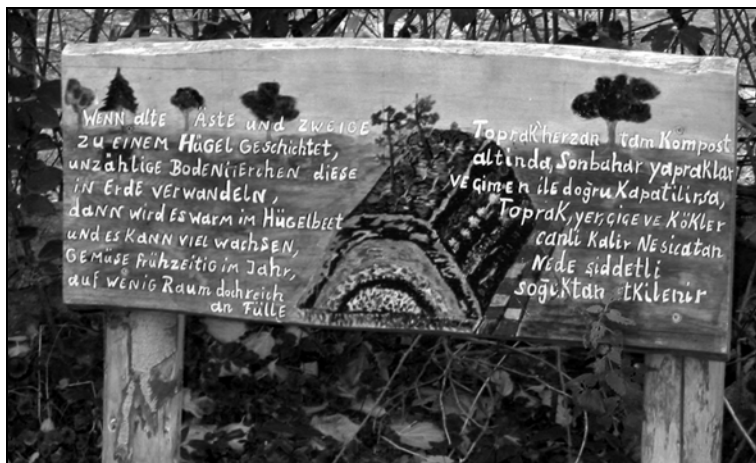 WENN alte Äste und ZWEIGE
ZU EINEM HÜGEL GESCHICHTET,
UNZÄHLIGE BODENTIERCHEN DIESE
IN ERDE VERWANDELN,
DANN WIRD ES WARM IM HÜGELBEET
UND ES KANN VIEL WACHSEN,
GEMÜSE FRÜHZEITIG IM JAHR,
auf WENIG RAUM doch reich
an FÜLLE
Toprak herzan tam Kompost
altinda, Sonbahar yapraklar
VE çimen ile doğru Kapatilirsa,
TOPRAK, yer, çiçe ve KÖKLER
canli Kalir NE sicatan
NEDE şiddetli
soğuktan etkilenir